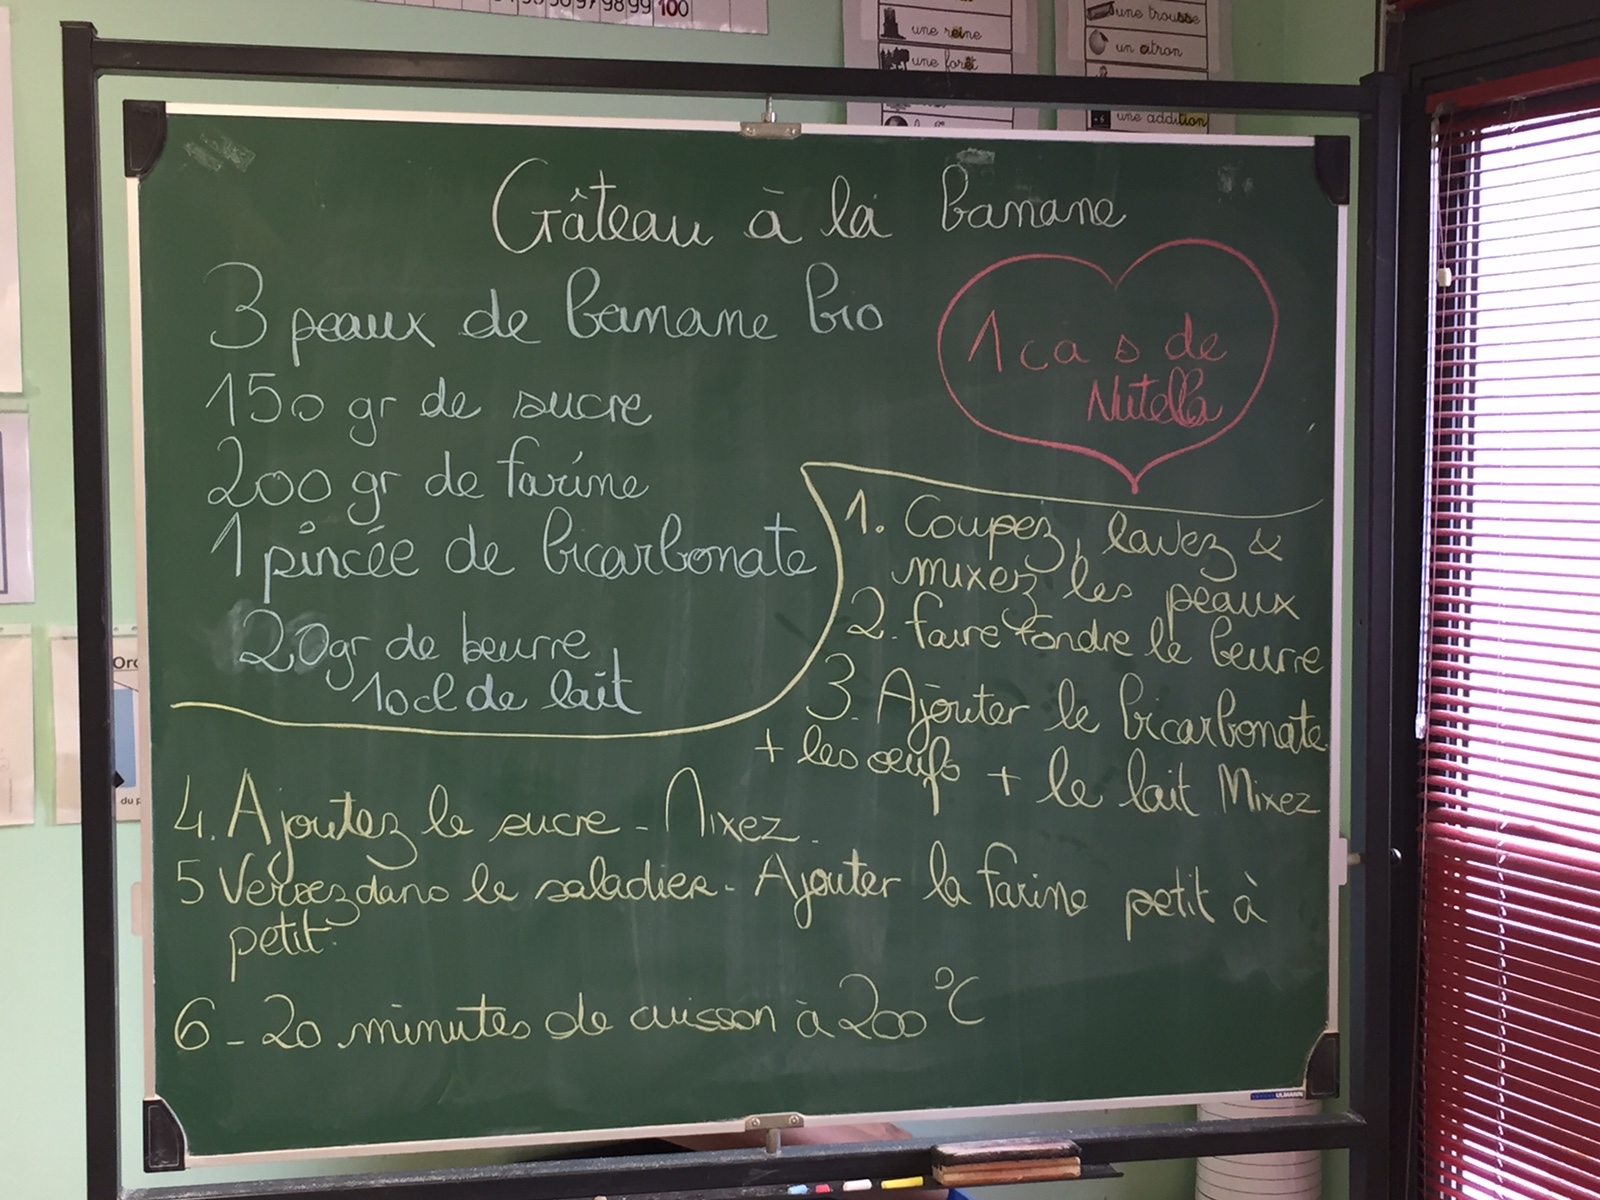 98 99 100
une reine
une forêt
une trousse
un citron
une addition
Gâteau à la banane
3 peaux de banane bio
150 gr de sucre
200 gr de farine
1 pincée de bicarbonate
20gr de beurre
10cl de lait
1 c a s de
Nutella
1. Coupez, lavez &
mixez les peaux
2. faire fondre le beurre
3. Ajouter le bicarbonate
+ les œufs + le lait Mixez
4. Ajoutez le sucre - Mixez.
5 Versez dans le saladier - Ajouter la farine petit à
petit.
6 - 20 minutes de cuisson à 200 °C
Ord
du p
ULMANN